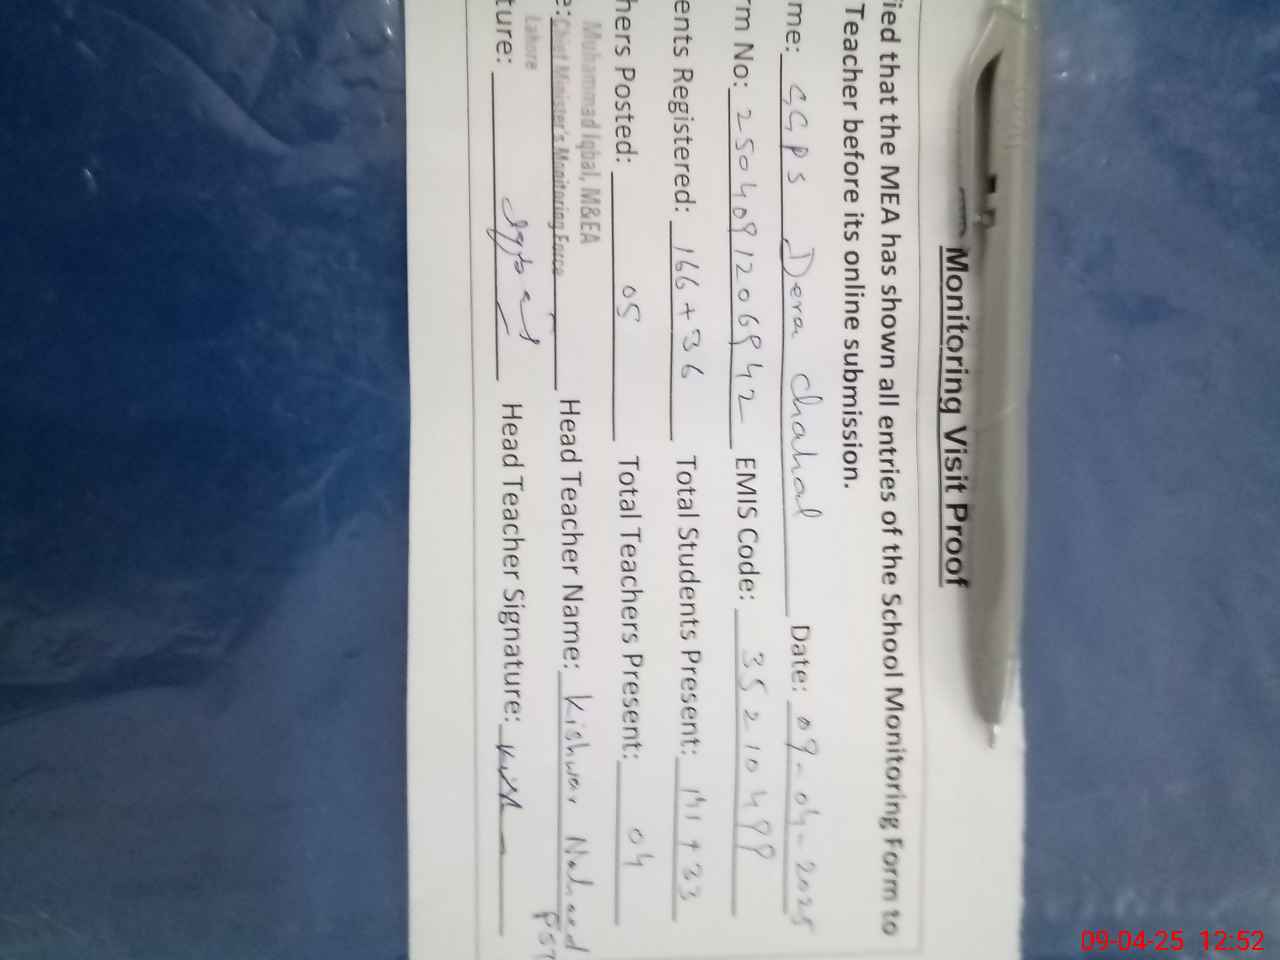 Monitoring Visit Proof
ied that the MEA has shown all entries of the School Monitoring Form to
Teacher before its online submission.
me: GGPS Dera chahal Date: 09-04-2025
rm No: 2504091206942 EMIS Code: 35210499
ents Registered: 166+36 Total Students Present: 141+33
hers Posted: 05 Total Teachers Present: 04
Muhammad Iqbal, M&EA
e: Chief Minister's Monitoring Force Head Teacher Name: Kishwar Naheed
Lahore PST
ture: Head Teacher Signature:
09-04-25 12:52